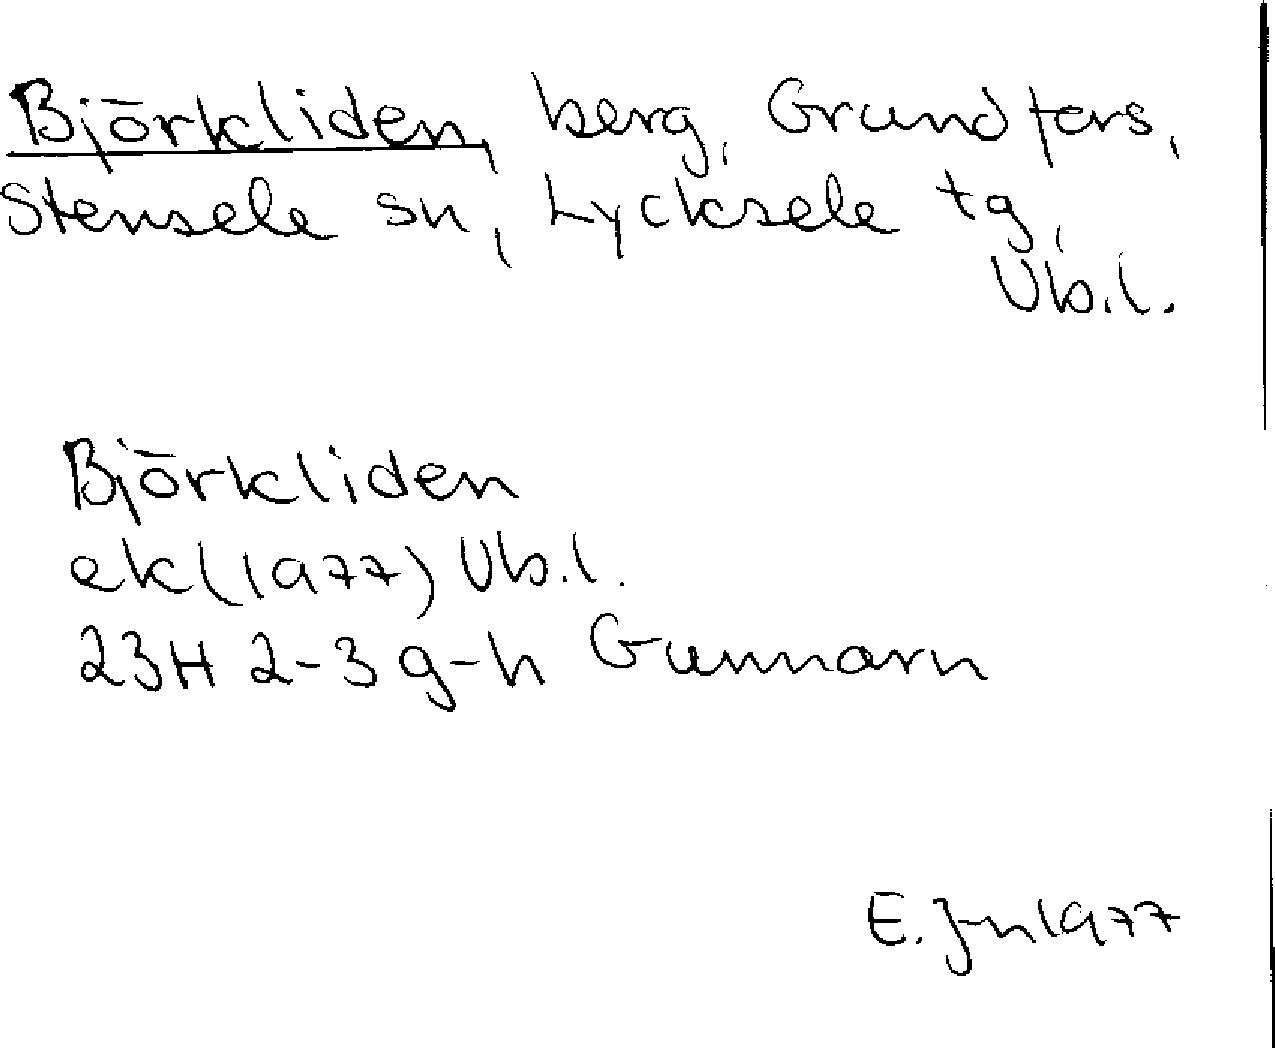 Björkliden, berg, Grundfors,
Stensele sn, Lycksele tg,
Vb.l.
Björkliden
ek (1977) Vb.l.
23H 2-3 g-h Gunnarn
E. Jn 1977